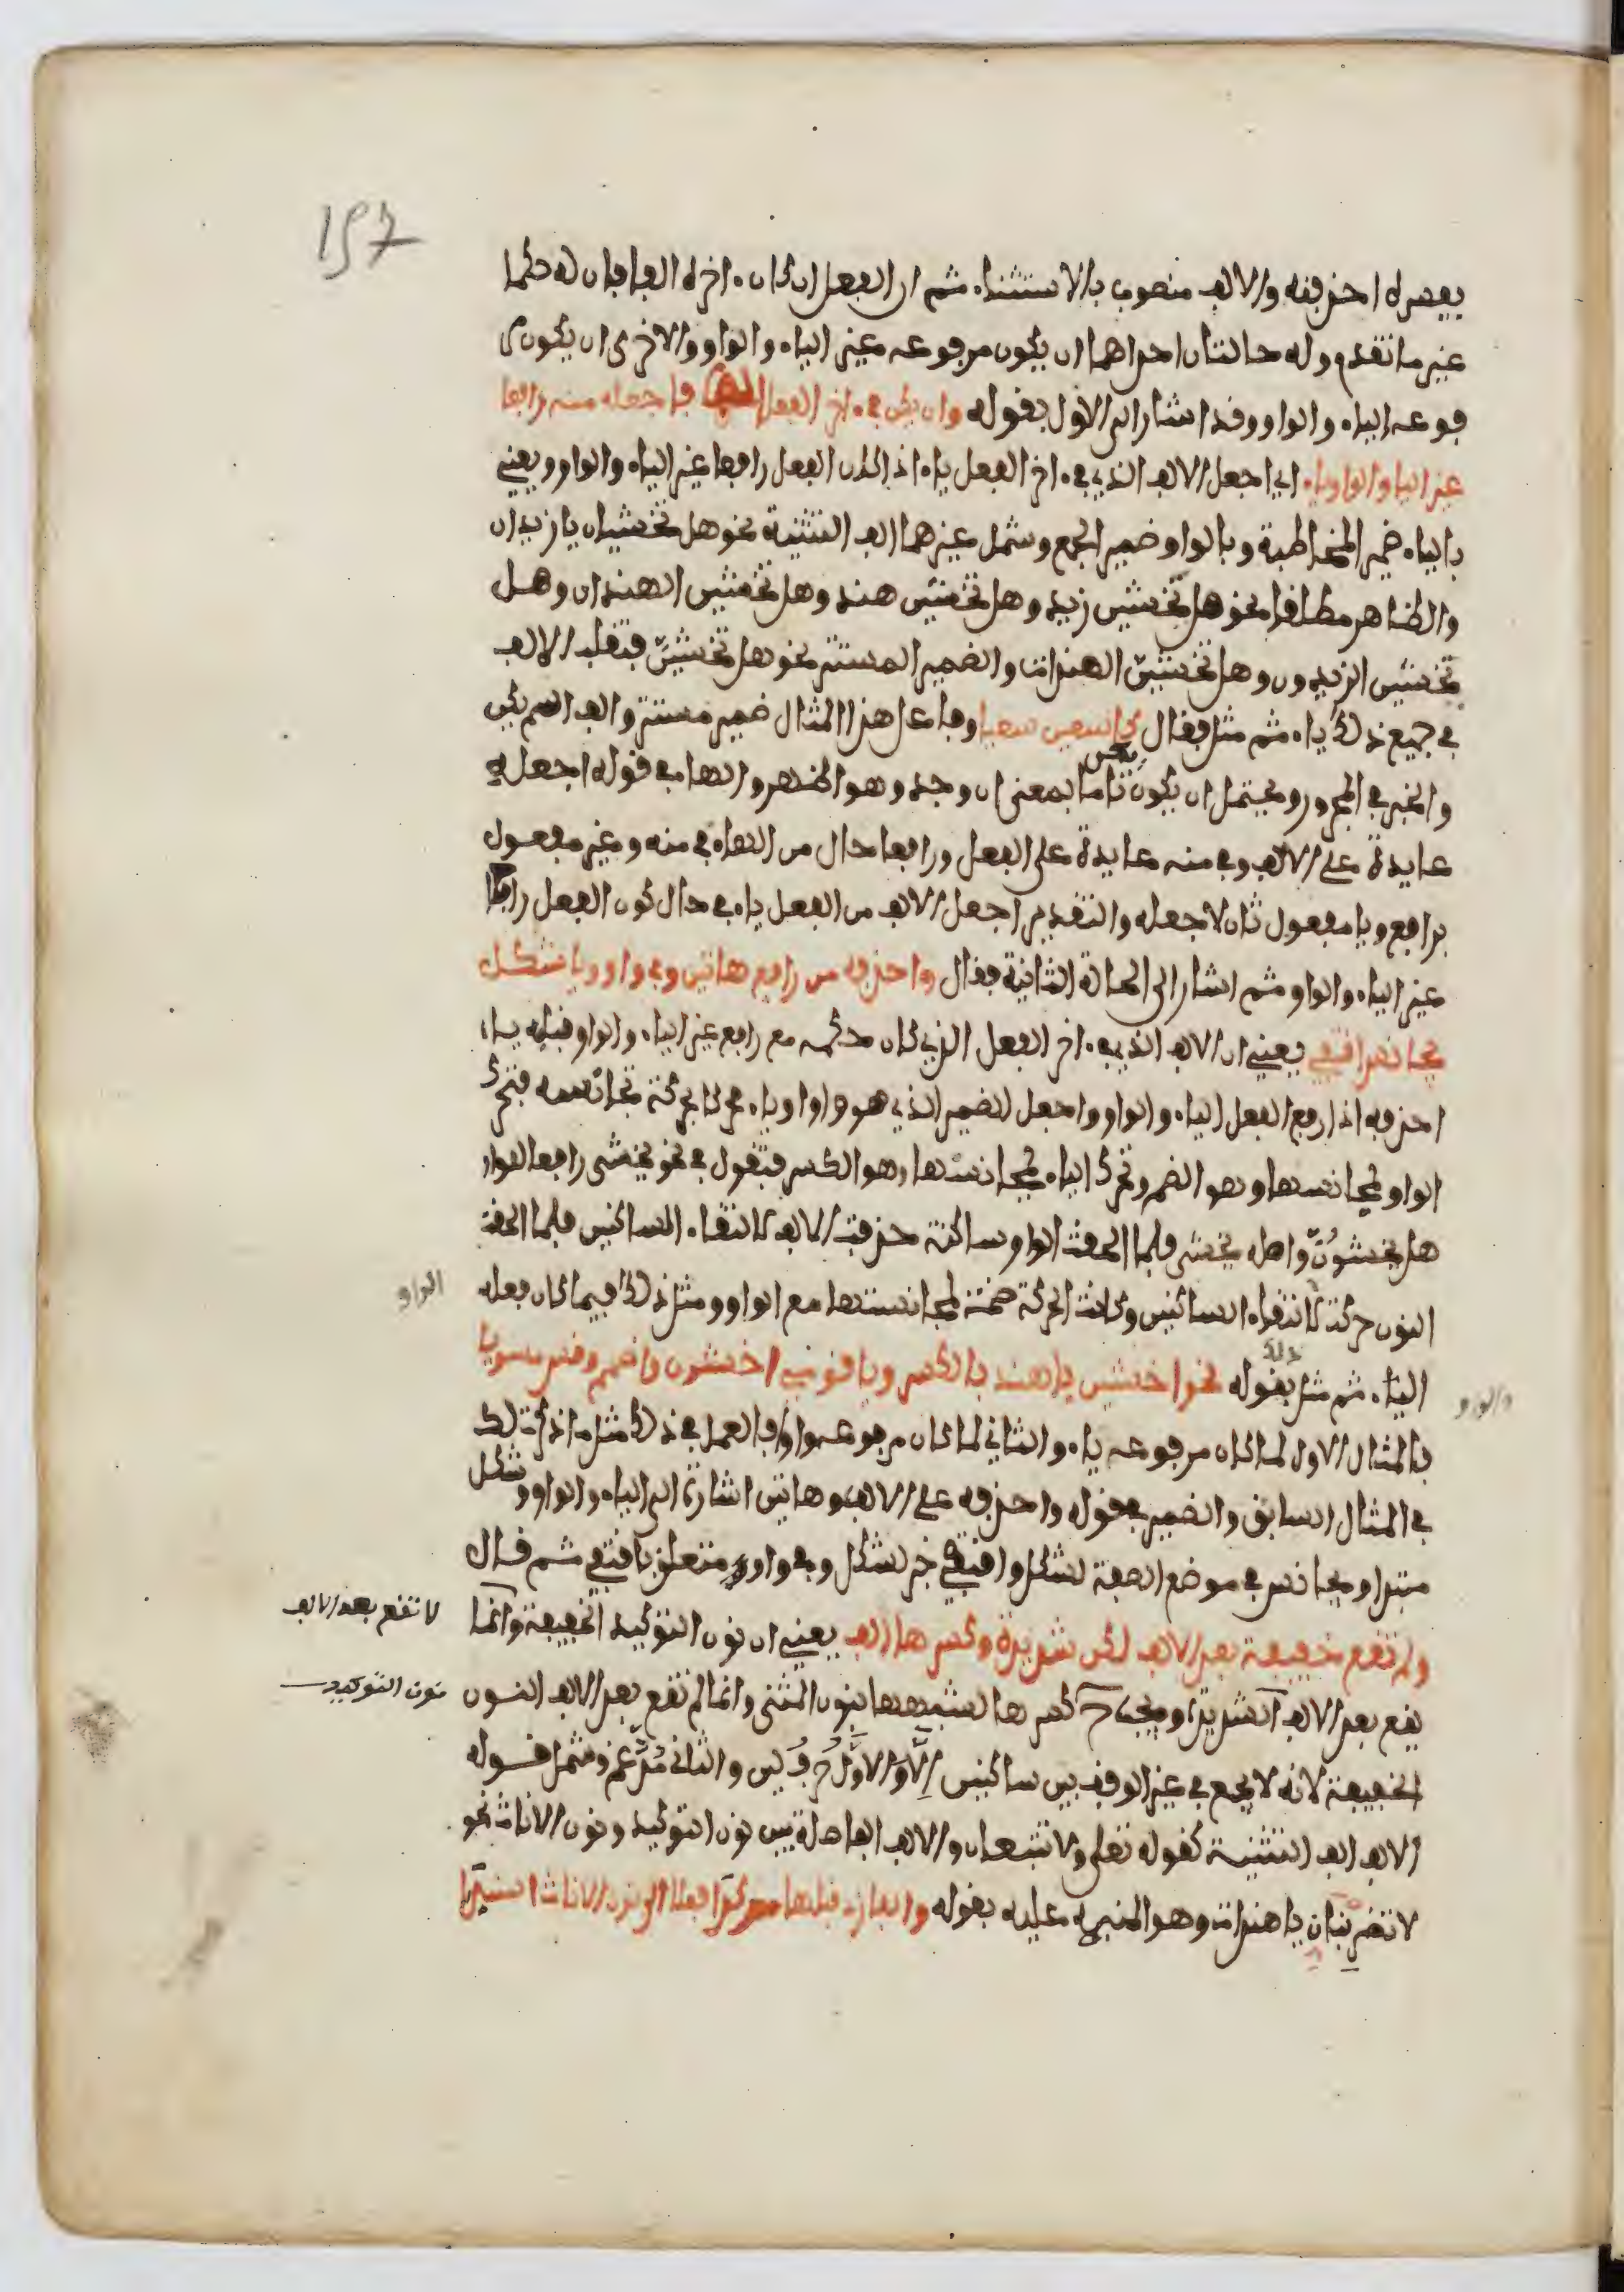 157
يفسره احذفنه والالف منصوب بالاستثناء ثم ان الفعل ان كان ءاخره الفا فان له حكما
غير ما تقدم وله حالتان احداهما ان يكون مرفوعه غير الياء والواو والاخرى ان يكون مر
فوعه الياء والواو وقد اشار الى الاول بقوله وان يكن في ءاخر الفعل الف فاجعله منه رافعا
غير اليا والواو ياء اي اجعل الالف الذي في ءاخر الفعل ياء اذا كان الفعل رافعا غير الياء والواو ويعني
بالياء ضمير المخاطبة وبالواو ضمير الجمع وشمل غيرهما الف التثنية نحو هل تخشيان يا زيدان
والظاهر مطلقا نحو هل يخشين زيد وهل تخشين هند وهل تخشين الهندان وهل
يخشين الزيدون وهل تخشين الهندات والضمير المستتر نحو هل تخشين فتقلب الالف
في جميع ذلك ياء ثم مثل فقال كاسعين سعيا وفاعل هذا المثال ضمير مستتر والف اسم يكن
والخبر في المجرور ويحتمل ان يكون يكن تاما بمعنى ان وجد وهو اظهر والها في قوله اجعله
عايدة على الالف وفي منه عايدة على الفعل ورافعا حال من الهاء في منه وغير مفعول
برافع ويا مفعول ثان لاجعله والتقدير اجعل الالف من الفعل ياء في حال كون الفعل رافعا
غير الياء والواو ثم اشار الى الحالة الثانية فقال واحذفه من رافع هاتين وفي واو ويا شكل
مجانس اقتفي يعني ان الالف الذي في ءاخر الفعل الذي كان حكمه مع رافع غير الياء والواو قلبه ياء
احذفه اذا رفع الفعل الياء والواو واجعل الضمير الذي هو واو او ياء محركا بحركة تجانسه فتحرك
الواو لمجانستها وهو الضم وتحرك الياء لمجانستها وهو الكسر فتقول في نحو يخشى رافعا الواو
هل يخشون واصله يخشى فلما الحقت الواو ساكنة حذفت الالف لالتقاء الساكنين فلما الحقت
النون حركت لالتقاء الساكنين وكانت الحركة ضمة لمجانستها مع الواو ومثل ذلك فيما كان فعله
الواو
الياء ثم مثل ذلك بقوله نحو اخشين يا هند بالكسر ويا قوم اخشون واضمم وقس مسويا
والواو
فالمثال الاول لما كان مرفوعه ياء والثاني لما كان مرفوعه واوا فالعمل في ذلك مثل ما ذكرت لك
في المثال السابق والضمير في قوله واحذفه على الالف وهاتين اشارة الى الياء والواو وشكل
مبتدا ومجانس في موضع الصفة لشكل واقتفي خبر لشكل وفي واو متعلق باقتفي ثم قال
ولم تقع خفيفة بعد الالف لكن شديدة وكسرها الف يعني ان نون التوكيد الخفيفة وانما
لا تقع بعد الالف
يقع بعد الالف الشديدة ويجب ح كسرها لشبهها بنون المثنى وانما لم تقع بعد الالف النون
نون التوكيد
الخفيفة لانه لا يجمع في غير الوقف بين ساكنين الا والاول حرف لين والثاني مدغم وشمل قوله
الالف الف التثنية كقوله تعلى ولا تتبعان والالف الفاصلة بين نون التوكيد ونون الاناث نحو
لا تضربنان يا هندات وهو المنبه عليه بقوله والفا زد قبلها مؤكدا فعلا الى نون الاناث اسندا